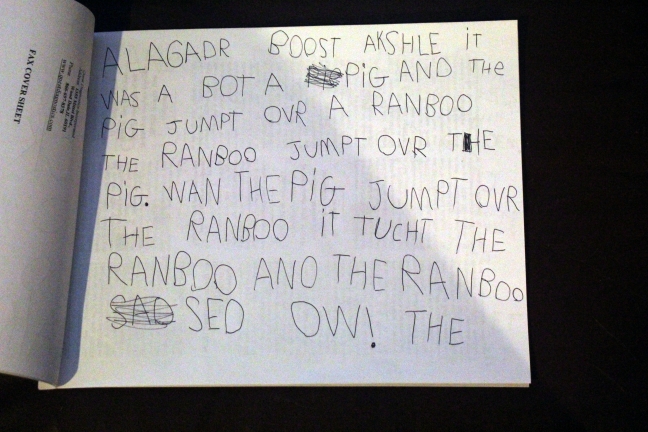 FAX COVER SHEET
ALAGADR BOOST AKSHLE iT
WAS A BOT A PiG AND THe
PiG JUMPT OVR A RANBOO
THE RANBOO JUMPT OVR THE
PiG. WAN THE PiG JUMPT OVR
THE RANBOO iT TUCHT THE
RANBOO AND THE RANBOO
SED OW! THE